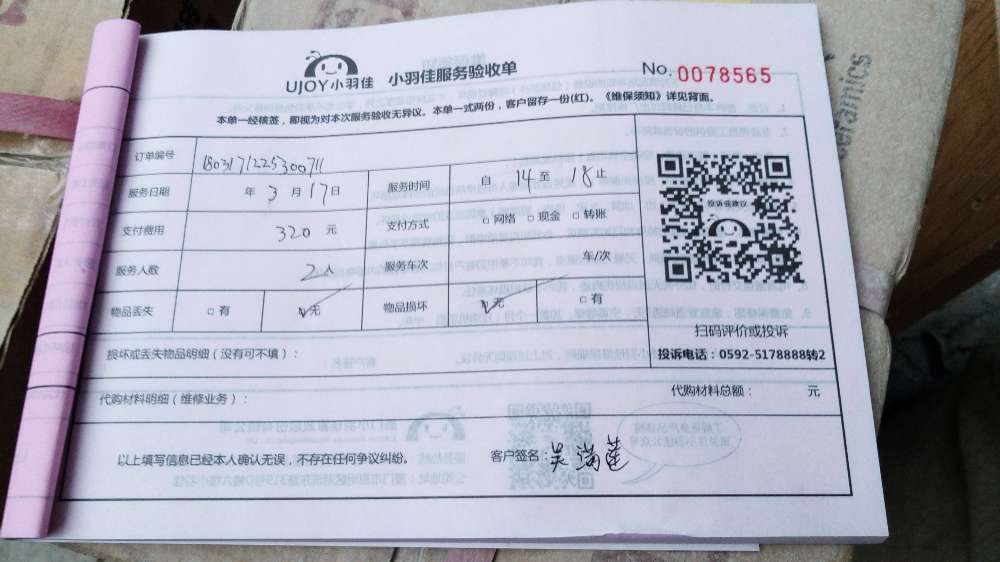 UJOY小羽佳 小羽佳服务验收单 No. 0078565
本单一经核签，即视为对本次服务验收无异议。本单一式两份，客户留存一份(红)。《维保须知》详见背面。
订单编号 1803171225300711
服务日期 年 3 月 17 日 服务时间 自 14 至 18 止
支付费用 320 元 支付方式 □ 网络 □ 现金 □ 转账
服务人数 2 人 服务车次 车/次
物品丢失 □ 有 □ 无 物品损坏 □ 无 □ 有
投诉或建议
扫码评价或投诉
投诉电话：0592-5178888转2
损坏或丢失物品明细（没有可不填）：
代购材料明细（维修业务）： 代购材料总额： 元
以上填写信息已经本人确认无误，不存在任何争议纠纷。 客户签名：吴满莲